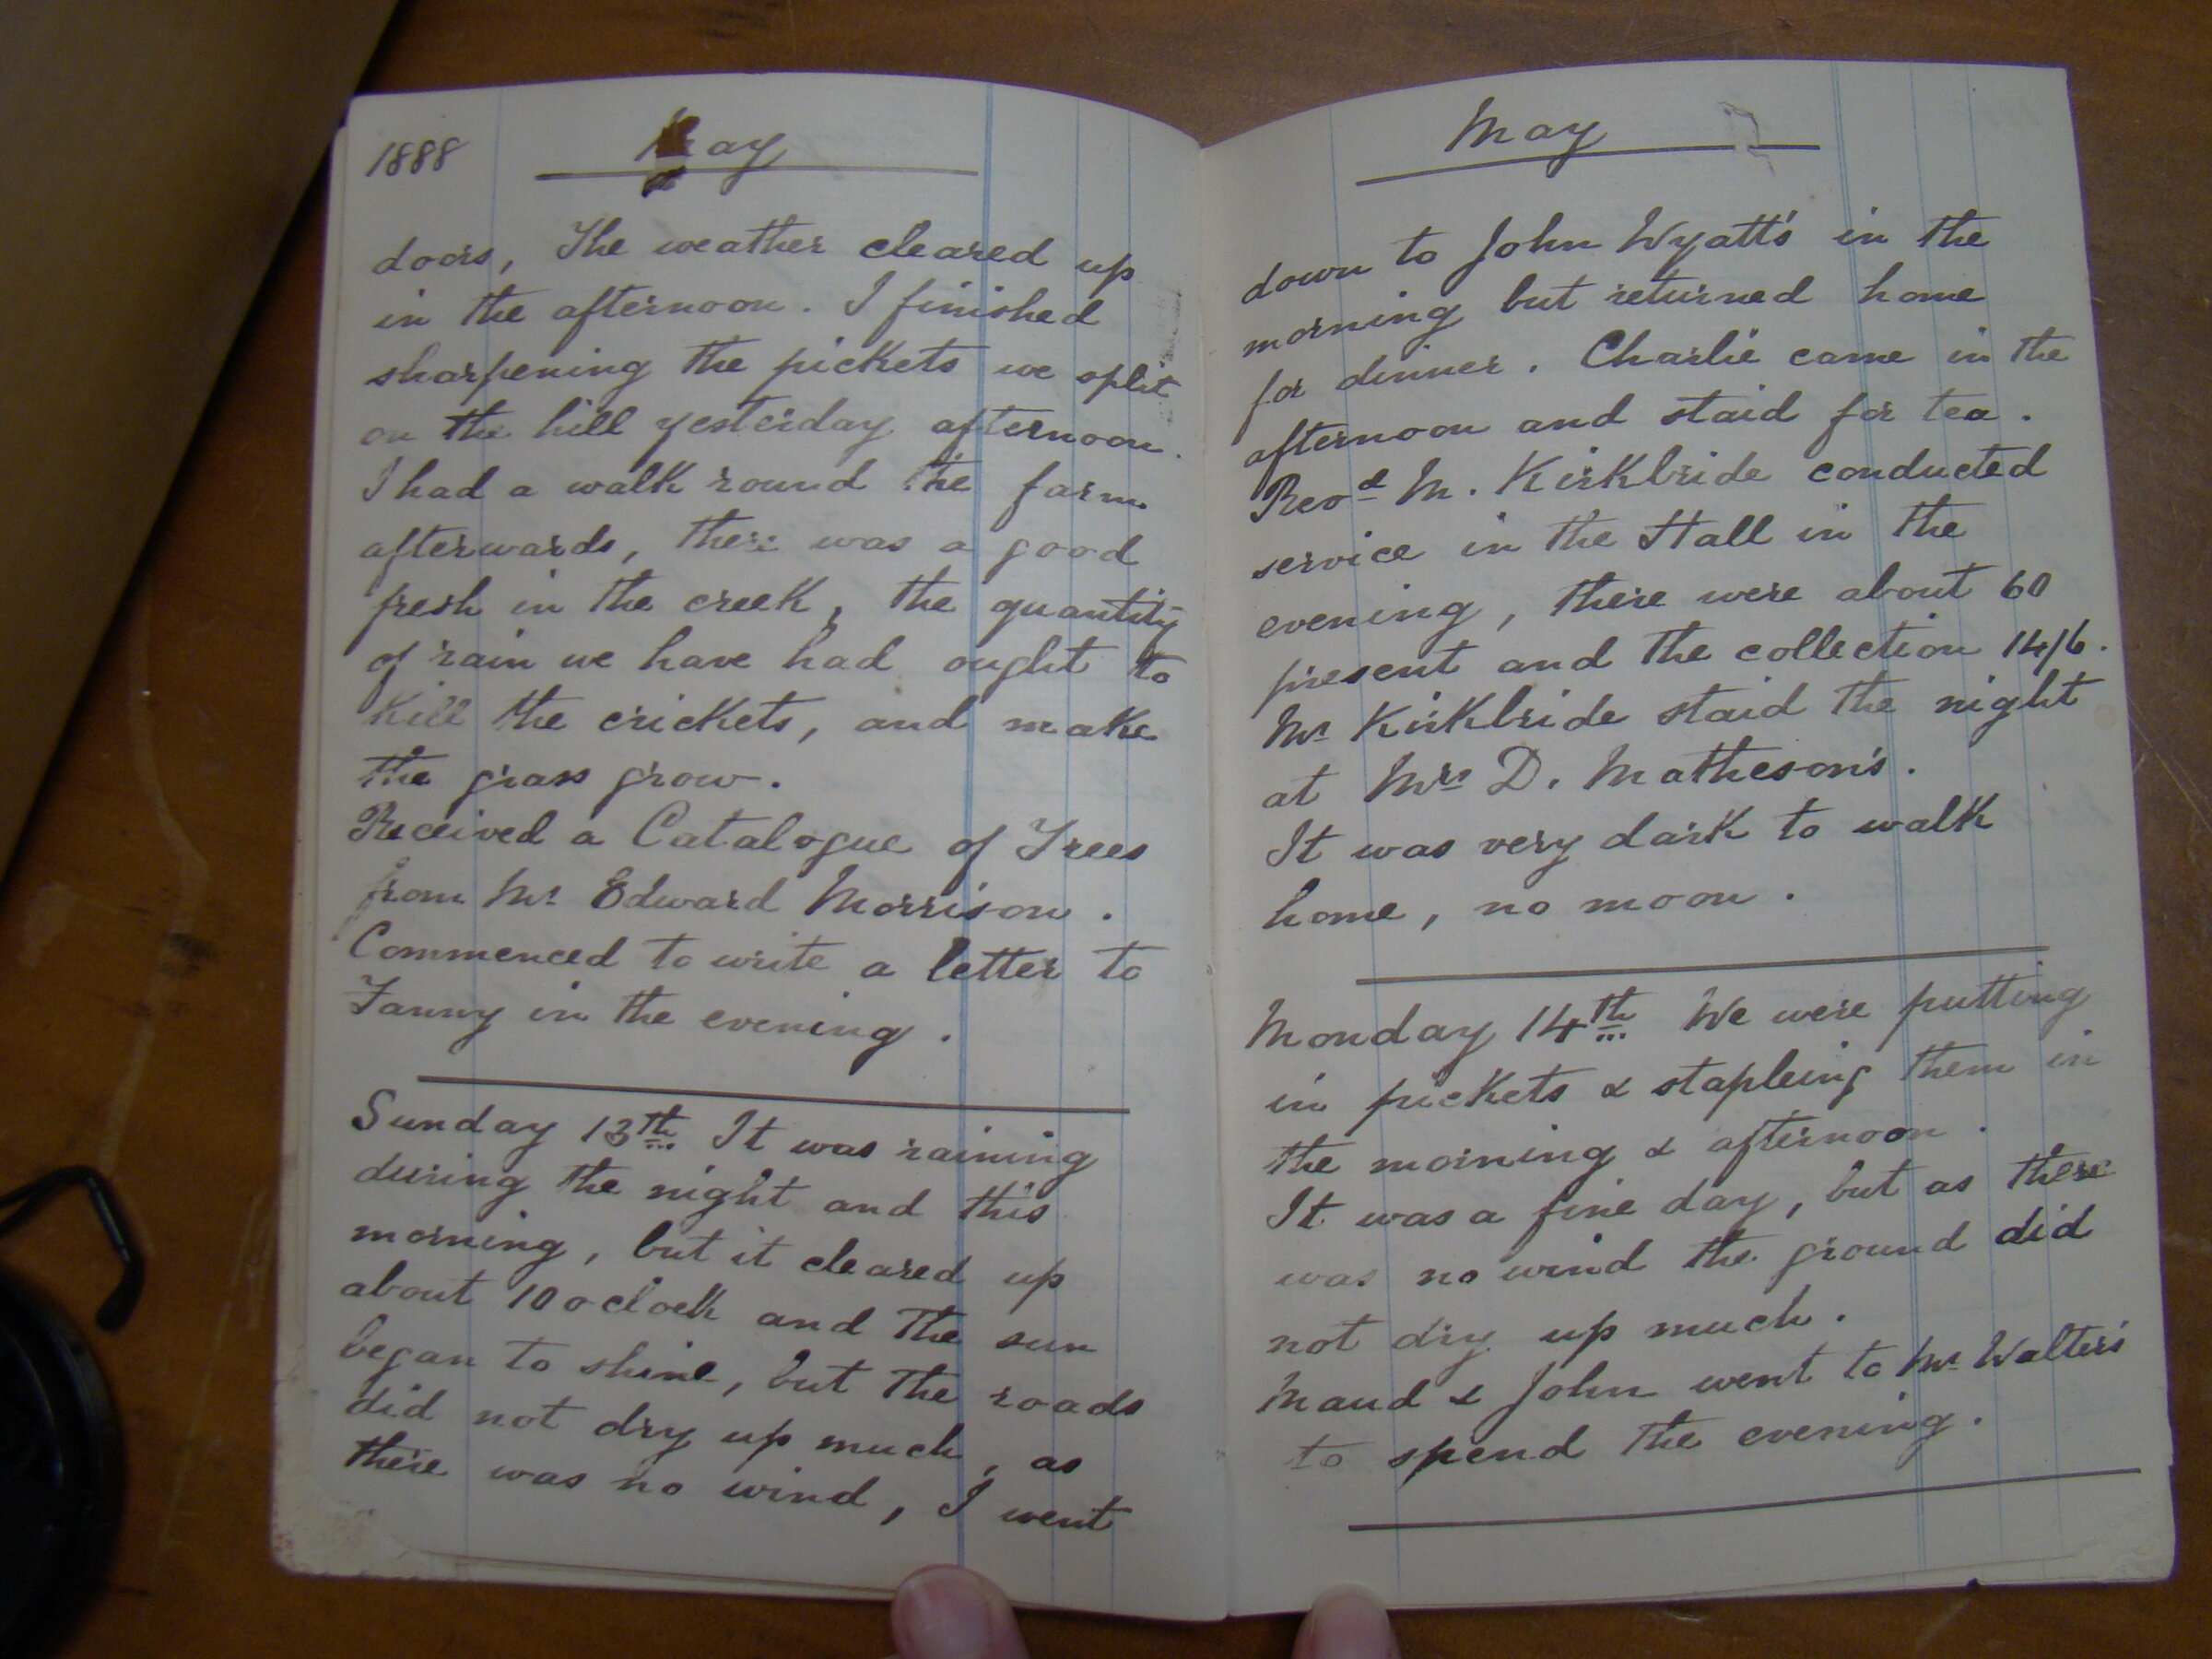 1888 May
doors, The weather cleared up
in the afternoon. I finished
sharpening the pickets we split
on the hill yesterday afternoon.
I had a walk round the farm
afterwards, there was a good
fresh in the creek, the quantity
of rain we have had ought to
kill the crickets, and make
the grass grow.
Received a Catalogue of Trees
from Mr Edward Morrison.
Commenced to write a letter to
Fanny in the evening.
Sunday 13th It was raining
during the night and this
morning, but it cleared up
about 10 oclock and the sun
began to shine, but the roads
did not dry up much, as
there was no wind, I went
May
down to John Wyatt's in the
morning but returned home
for dinner. Charlie came in the
afternoon and staid for tea.
Revd M. Kirkbride conducted
service in the Hall in the
evening, there were about 60
present and the collection 14/6.
Mr Kirkbride staid the night
at Mrs D. Matheson's.
It was very dark to walk
home, no moon.
Monday 14th We were putting
in pickets & stapleing them in
the morning & afternoon.
It was a fine day, but as there
was no wind the ground did
not dry up much.
Maud & John went to Mr Walter's
to spend the evening.